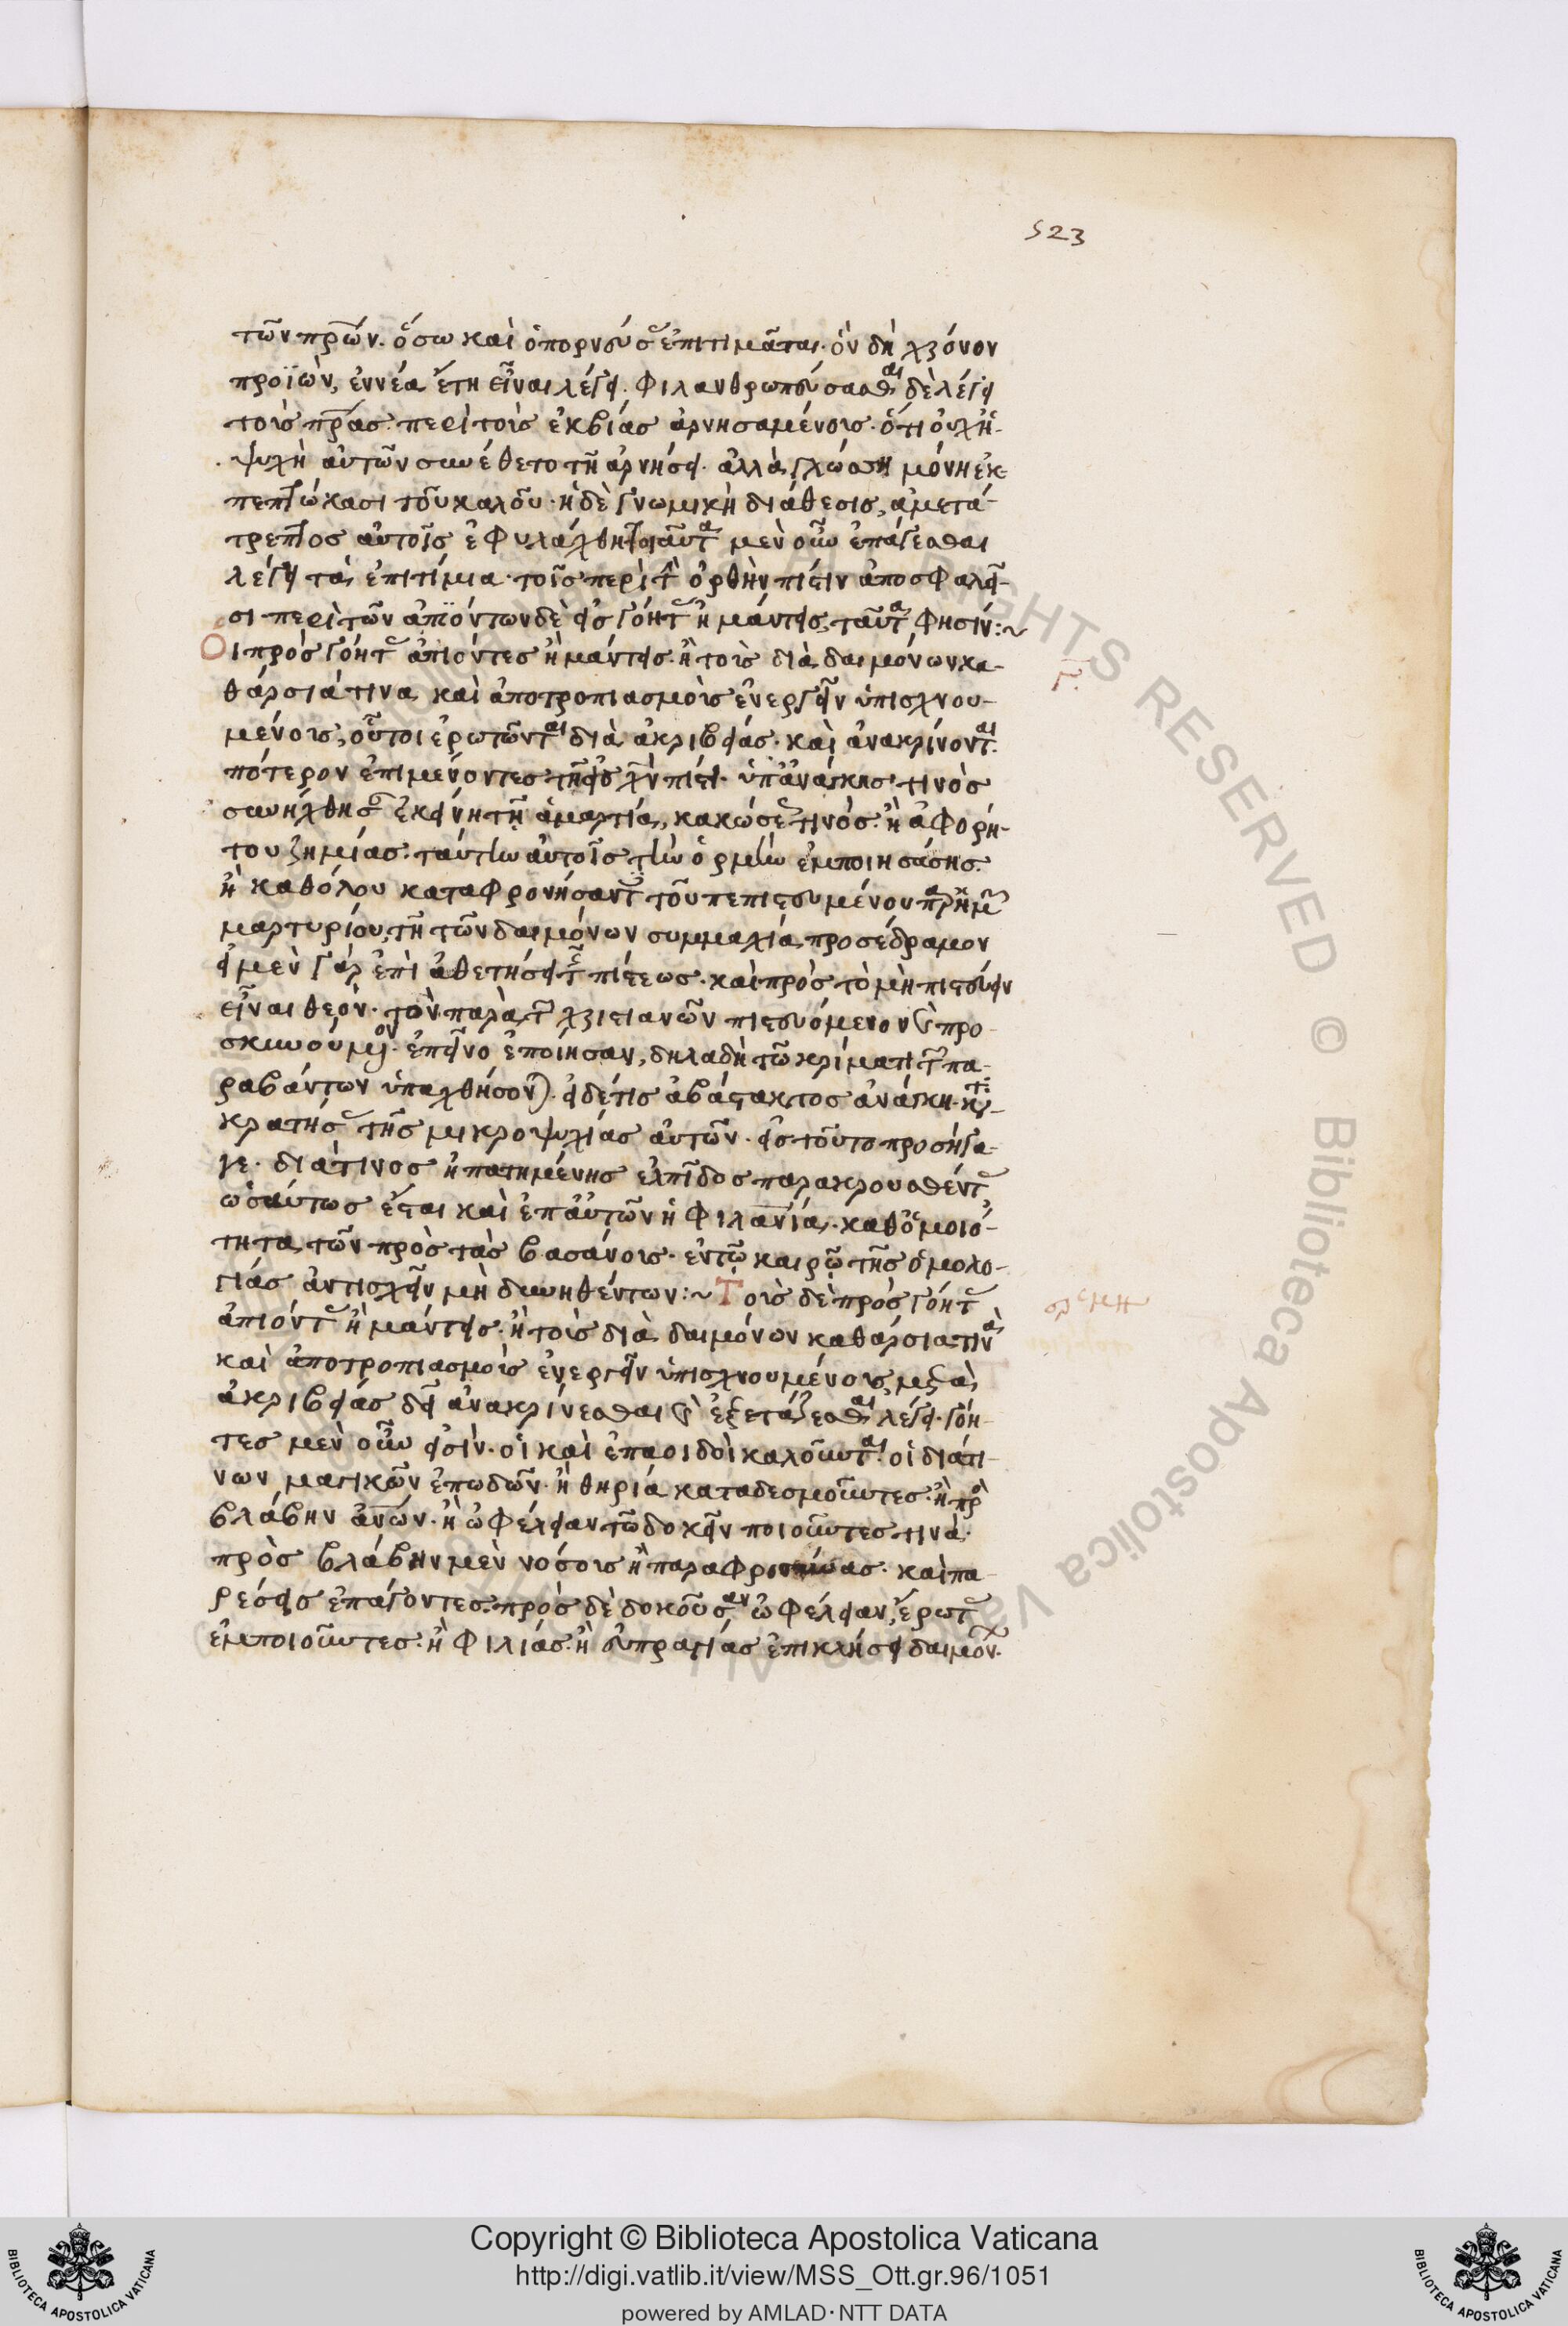 523
τῶν πρων. ὅσω καὶ ὁ πορνεύσ ἐπιτιμᾶται. ὃν δὴ χρόνον
προϊὼν, ἐννέα ἔτη εἶναι λέγει. φιλανθρωπεύσασθαι δὲ λέγει
τοὺς πρας. περὶ τοὺς ἐκ βίας ἀρνησαμένους. ὅτι οὐχ ἡ
ψυχὴ αὐτῶν συνέθετο τῆ ἀρνήσει. ἀλλὰ γλώσση μόνη ἐκ
πεπτώκασι τοῦ καλοῦ. ἡ δὲ γνωμικὴ διάθεσις, ἀμετά-
τρεπτος αὐτοῖς ἐφυλάχθη. ταῦτα μὲν οὖν ἐπάγεσθαι
λέγει τὰ ἐπιτίμια. τοῖς περὶ τὴν ὀρθὴν πίστιν ἀποσφαλεῖ-
σι. περὶ τῶν ἀπϊόντων δὲ εἰς γόητ ἢ μάντεις, ταῦτα φησίν:~
Οἱ πρὸς γόητ ἀπιόντες ἢ μάντεις. ἢ τοὺς διὰ δαιμόνων κα-
θάρσιά τινα καὶ ἀποτροπιασμοὺς ἐνεργεῖν ὑπισχνου-
γ.
μένους, οὗτοι ἐρωτῶνται δι' ἀκριβείας. καὶ ἀνακρίνονται.
πότερον ἐπιμένοντες τῆ εἰς χν πίστει. ὑπ' ἀνάγκης τινὸς
συνήχθησ ἐκείνη τῆ ἁμαρτία, κακώσε τινὸς. ἢ ἀφορή-
του ζημίας. ταύτην αὐτοῖς τὴν ὁρμὴν ἐμποιησάσης.
ἢ καθόλου καταφρονήσαντ τοῦ πεπιστευμένου παρ ἡμ
μαρτυρίου, τῆ τῶν δαιμόνων συμμαχία προσέδραμον
εἰ μὲν γὰρ ἐπὶ ἀθετήσει τ πίστεως. καὶ πρὸς τὸ μὴ πιστεύειν
εἶναι θεὸν. τὸν παρὰ τ χριστιανῶν πιστευόμενον καὶ προ-
σκυνούμενον. ἐπεῖνο ἐποίησαν, δηλαδὴ τῶ κρίματι τ πα-
ραβάντων ὑπαχθήσον. εἰ δέ τις ἀβάστακτος ἀνάγκη. κατ
κρατήσ τῆς μικροψυχίας αὐτῶν. εἰς τοῦτο προσήγα-
γε. διά τινος ἠπατημένης ἐλπίδος παρακρουσθέντ
ὡσαύτως ἔσται καὶ ἐπ' αὐτῶν ἡ φιλανία. καθ' ὁμοιό-
τητα τῶν πρὸς τὰς βασάνους. ἐν τῶ καιρῶ τῆς ὁμολο-
γίας ἀντισχεῖν μὴ δυνηθέντων:~ Τοὺς δὲ πρὸς γόητ
ἑρμη
ἀπιόντ ἢ μάντεις. ἢ τοὺς διὰ δαιμόνων καθάρσιά τινα
καὶ ἀποτροπιασμοὺς ἐνεργεῖν ὑπισχνουμένους, μετὰ
ἀκριβείας δεῖ ἀνακρίνεσθαι καὶ ἐξετάζεσθαι λέγει. γόη-
τες μὲν οὖν εἰσίν. οἱ καὶ ἐπαοιδοὶ καλοῦνται. οἱ διά τι-
νων μαγικῶν ἐπωδῶν. ἢ θηρία καταδεσμοῦντες. ἢ προ
βλάβην ἀνων. ἢ ὠφέλειαν τῶ δοκεῖν ποιοῦντες τινὰ.
πρὸς βλάβην μὲν νόσους ἢ παραφροσύνας. καὶ πα-
ρέσεις ἐπάγοντες. πρὸς δὲ δοκοῦσαν ὠφέλειαν, ἔρωτ
ἐμποιοῦντες. ἢ φιλίας. ἢ εὐπραγίας ἐπικλήσει δαιμόν.
ALL RIGHTS RESERVED © Biblioteca Apostolica Vaticana
Copyright © Biblioteca Apostolica Vaticana
http://digi.vatlib.it/view/MSS_Ott.gr.96/1051
powered by AMLAD·NTT DATA
BIBLIOTECA APOSTOLICA VATICANA
BIBLIOTECA APOSTOLICA VATICANA